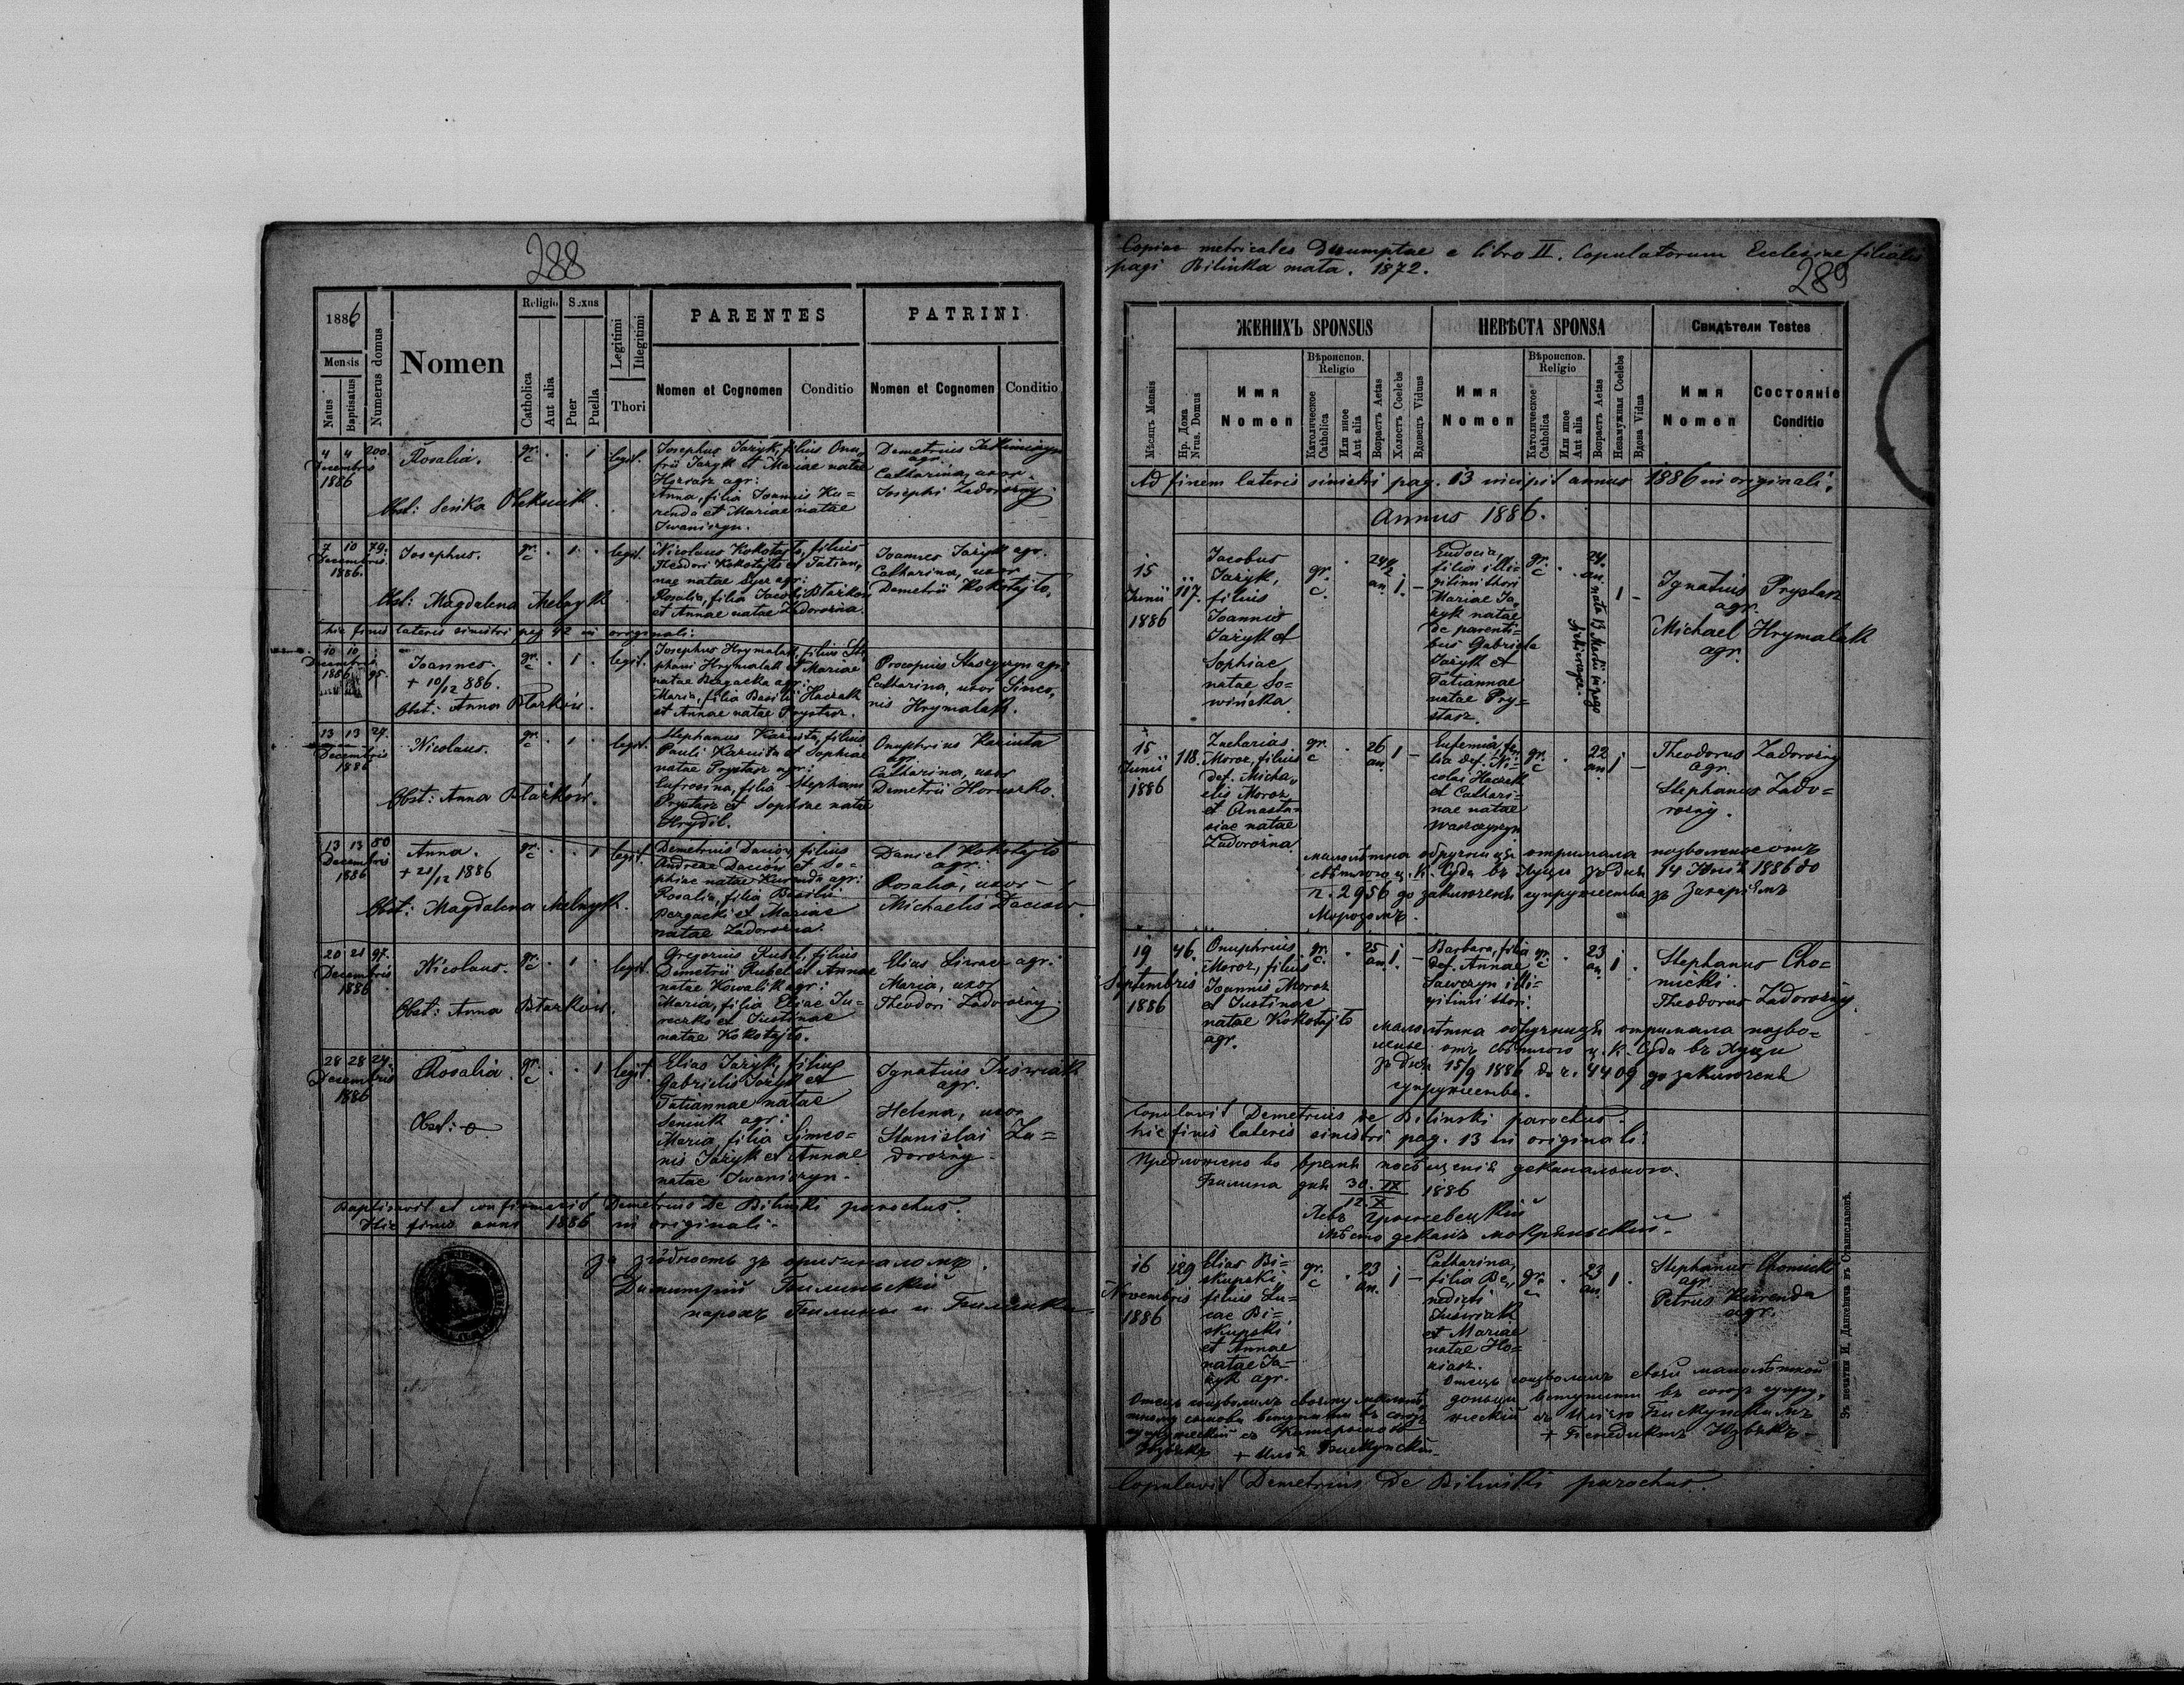 288
1886
Mensis
Natus
Baptisatus
Numerus domus
Nomen
Religio
Catholica
Aut alia
Sexus
Puer
Puella
Legitimi
Illegitimi
Thori
PARENTES
Nomen et Cognomen
Conditio
PATRINI
Nomen et Cognomen
Conditio
4 4 200.
Decembris
1886
Rosalia.
gr. c
1
legit.
Obst: Senka Oleksiuk.
Josephus Jazyk, filius Onu„
frii Jazyk et Mariae natae
agr:
Anna, filia Joannis Ku=
renda et Mariae natae
Iwaniczyn.
Demetrius
agr.
Catharina, uxor
Josephi Zadorożny
7 10 79.
Decembris
1886.
Josephus.
gr. c
1
legit.
Obst: Magdalena Melnyk
Nicolaus Kokotajło, filius
Theodori Kokotajło et Tatian„
nae natae agr:
Rosalia, filia Jacobi Ptaszkow
et Annae natae Zadorożna.
Joannes Jazyk agr.
Catharina, uxor
Demetrii Kokotajło.
hic finis lateris sinistri pag 42 in originali:
10 10
Decembris
1886 95.
Joannes.
+ 10/12 886.
gr. c
1
legit.
Obst: Anna Ptaszków.
Josephus Hrymalak, filius Ste
phani Hrymalak et Mariae
natae Bezgacka agr:
Maria, filia Basilii Haczak
et Annae natae Prystasz.
Procopius Staszczyszyn agr:
Catharina, uxor Simeo„
nis Hrymalak.
13 13 24.
Decembris
1886
Nicolaus.
gr. c
1
legit.
Obst: Anna Ptaszków.
Stephanus Kazuita, filius
Pauli Kazuita et Sophiae
natae Prystasz agr:
Eufrosina, filia Stephani
Prystasz et Sophiae natae
Hrydil.
Onuphrius Kazuita
agr.
Catharina, uxor
Demetrii
13 13 80
Decembris
1886
Anna.
+ 21/12 1886
gr. c
1
legit.
Obst: Magdalena Melnyk.
Demetrius Daciów, filius
Andreae Daciów et So=
phiae natae Kurenda agr:
Rosalia, filia Basilii
Bezgacki et Mariae
natae Zadorożna.
Daniel Kokotajło
agr:
Rosalia, uxor
Michaelis Daciow.
20 21 97.
Decembris
1886
Nicolaus.
gr. c
1
legit.
Obst: Anna Ptaszków.
Gregorius Rubel, filius
Demetrii Rubel et Annae
natae Kowalik agr:
Maria, filia Eliae Ju=
reczko et Justinae
natae Kokotajło.
Elias agr:
Maria, uxor
Theodori Zadorożny
28 28 24.
Decembris
1886
Rosalia
gr. c
1
legit.
Obst: o
Elias Jazyk, filius
Gabrielis Jazyk et
Tatiannae natae
Seniuk agr:
Maria, filia Simeo=
nis Jazyk et Annae
natae Iwaniczyn.
Ignatius Juświak
agr.
Helena, uxor
Stanislai Za=
dorożny
Baptisavit et confirmavit Demetrius De Biliński parochus.
Hic finis anni 1886 in originali.
За згôдность зъ оригиналомъ.
Димитрій Билиньскій
парохъ Билины и Билинки
Copiae metricales Desumptae e libro II. Copulatorum Ecclesiae filialis
pagi Bilinka mała. 1872.
289
Мѣсяцъ Mensis
Нр. Дома
Nrus. Domus
ЖЕНИХЪ SPONSUS
Имя
Nomen
Вѣроиспов.
Religio
Католическое
Catholica
Или иное
Aut alia
Возрастъ Aetas
Холостъ Coelebs
Вдовецъ Viduus
НЕВѢСТА SPONSA
Имя
Nomen
Вѣроиспов.
Religio
Католическое
Catholica
Или иное
Aut alia
Возрастъ Aetas
Незамужная Coelebs
Вдова Vidua
Свидѣтели Testes
Имя
Nomen
Состояніе
Conditio
Ad finem lateris sinistri pag. 13 incipit annus 1886 in originali.
Annus 1886.
15
Junii
1886
117.
Jacobus
Jazyk,
filius
Joannis
Jazyk et
Sophiae
natae So=
wińska.
gr. c.
24 1/2
an.
1.
Eudocia,
filia ille=
gitimi thori
Mariae Ja„
zyk natae
de parenti=
bus Gabriele
Jazyk et
Tatiannae
natae Pry=
stasz.
gr. c
24.
an.
1
Ignatius Prystasz
agr.
Michael Hrymalak
agr.
15
Junii
1886
118.
Zacharias
Moroz, filius
def. Micha„
elis Moroz
et Anasta=
siae natae
Zadorożna
gr. c
26
an.
1
Eufemia, fi
lia def. Ni=
colai Haczak
et Cathari=
nae natae
Waszczyszyn
gr. c
22
an
1
Theodorus Zadorożny
agr.
Stephanus Zado=
rożny.
малолѣтна обручниця отримала позволеніе отъ
свѣтлого ц. к. Суда въ Луцѣ зъ дня 14 Юнія 1886 до
ч. 2956 до заключеня супружества зъ Захаріємъ
Морозомъ.
19
Septembris
1886
46.
Onuphrius
Moroz, filius
Joannis Moroz
et Justinae
natae Kokotajło
agr.
gr. c.
25
an.
1.
Barbara, filia
def. Annae
Sawczyn ille=
gitimi thori
gr. c
23
an.
1
Stephanus Cho=
micki.
Theodorus Zadorożny
Малолѣтна обручниця отримала позво=
леніе отъ свѣтлого ц. к. Суда въ Луцѣ
зъ дня 15/9 1886 до ч. 4409 до заключеня
супружества.
Copulavit Demetrius de Bilinski parochus.
hic finis lateris sinistri pag. 13 in originali:
Предложено во время посѣщенія деканального.
Билина дня 30. IX / 12. X 1886
мѣсто
16
Novembris
1886
129
Elias Bi=
skupski,
filius Lu=
cae Bi=
skupski
et Annae
natae Ja=
zyk agr.
gr. c
23
an.
1
Catharina,
filia Be„
nedicti
Juświak
et Mariae
natae Ho=
niasz.
gr. c
23
an.
1.
Stephanus Chomicki
agr.
Petrus Kurenda
agr.
Отецъ соизволилъ своей малолѣтной
доньци вступити въ союзъ супру„
жескій съ Илією Бискупскимъ
+ Бенедиктъ
+ Илія Бискупскій
Copulavit Demetrius De Biliński parochus.
Зъ печатни И. Данкевича въ Станиславовѣ.